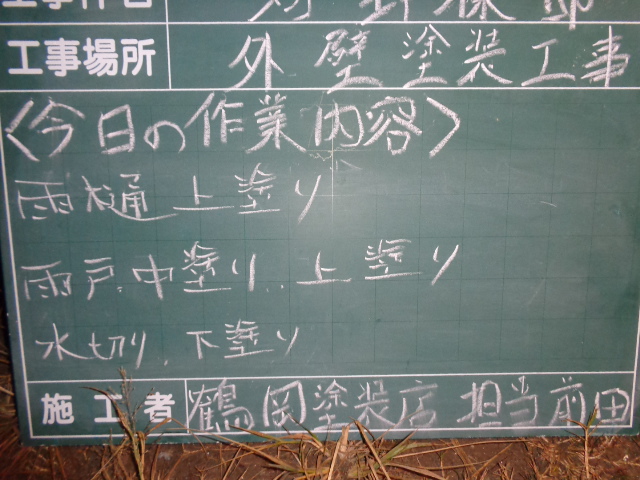 工事場所 外壁塗装工事
〈今日の作業内容〉
雨樋上塗り
雨戸.中塗り.上塗り
水切り.下塗り
施工者 鶴岡塗装店 担当前田